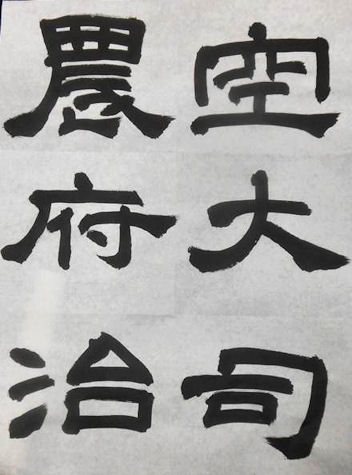 空大司
農府治